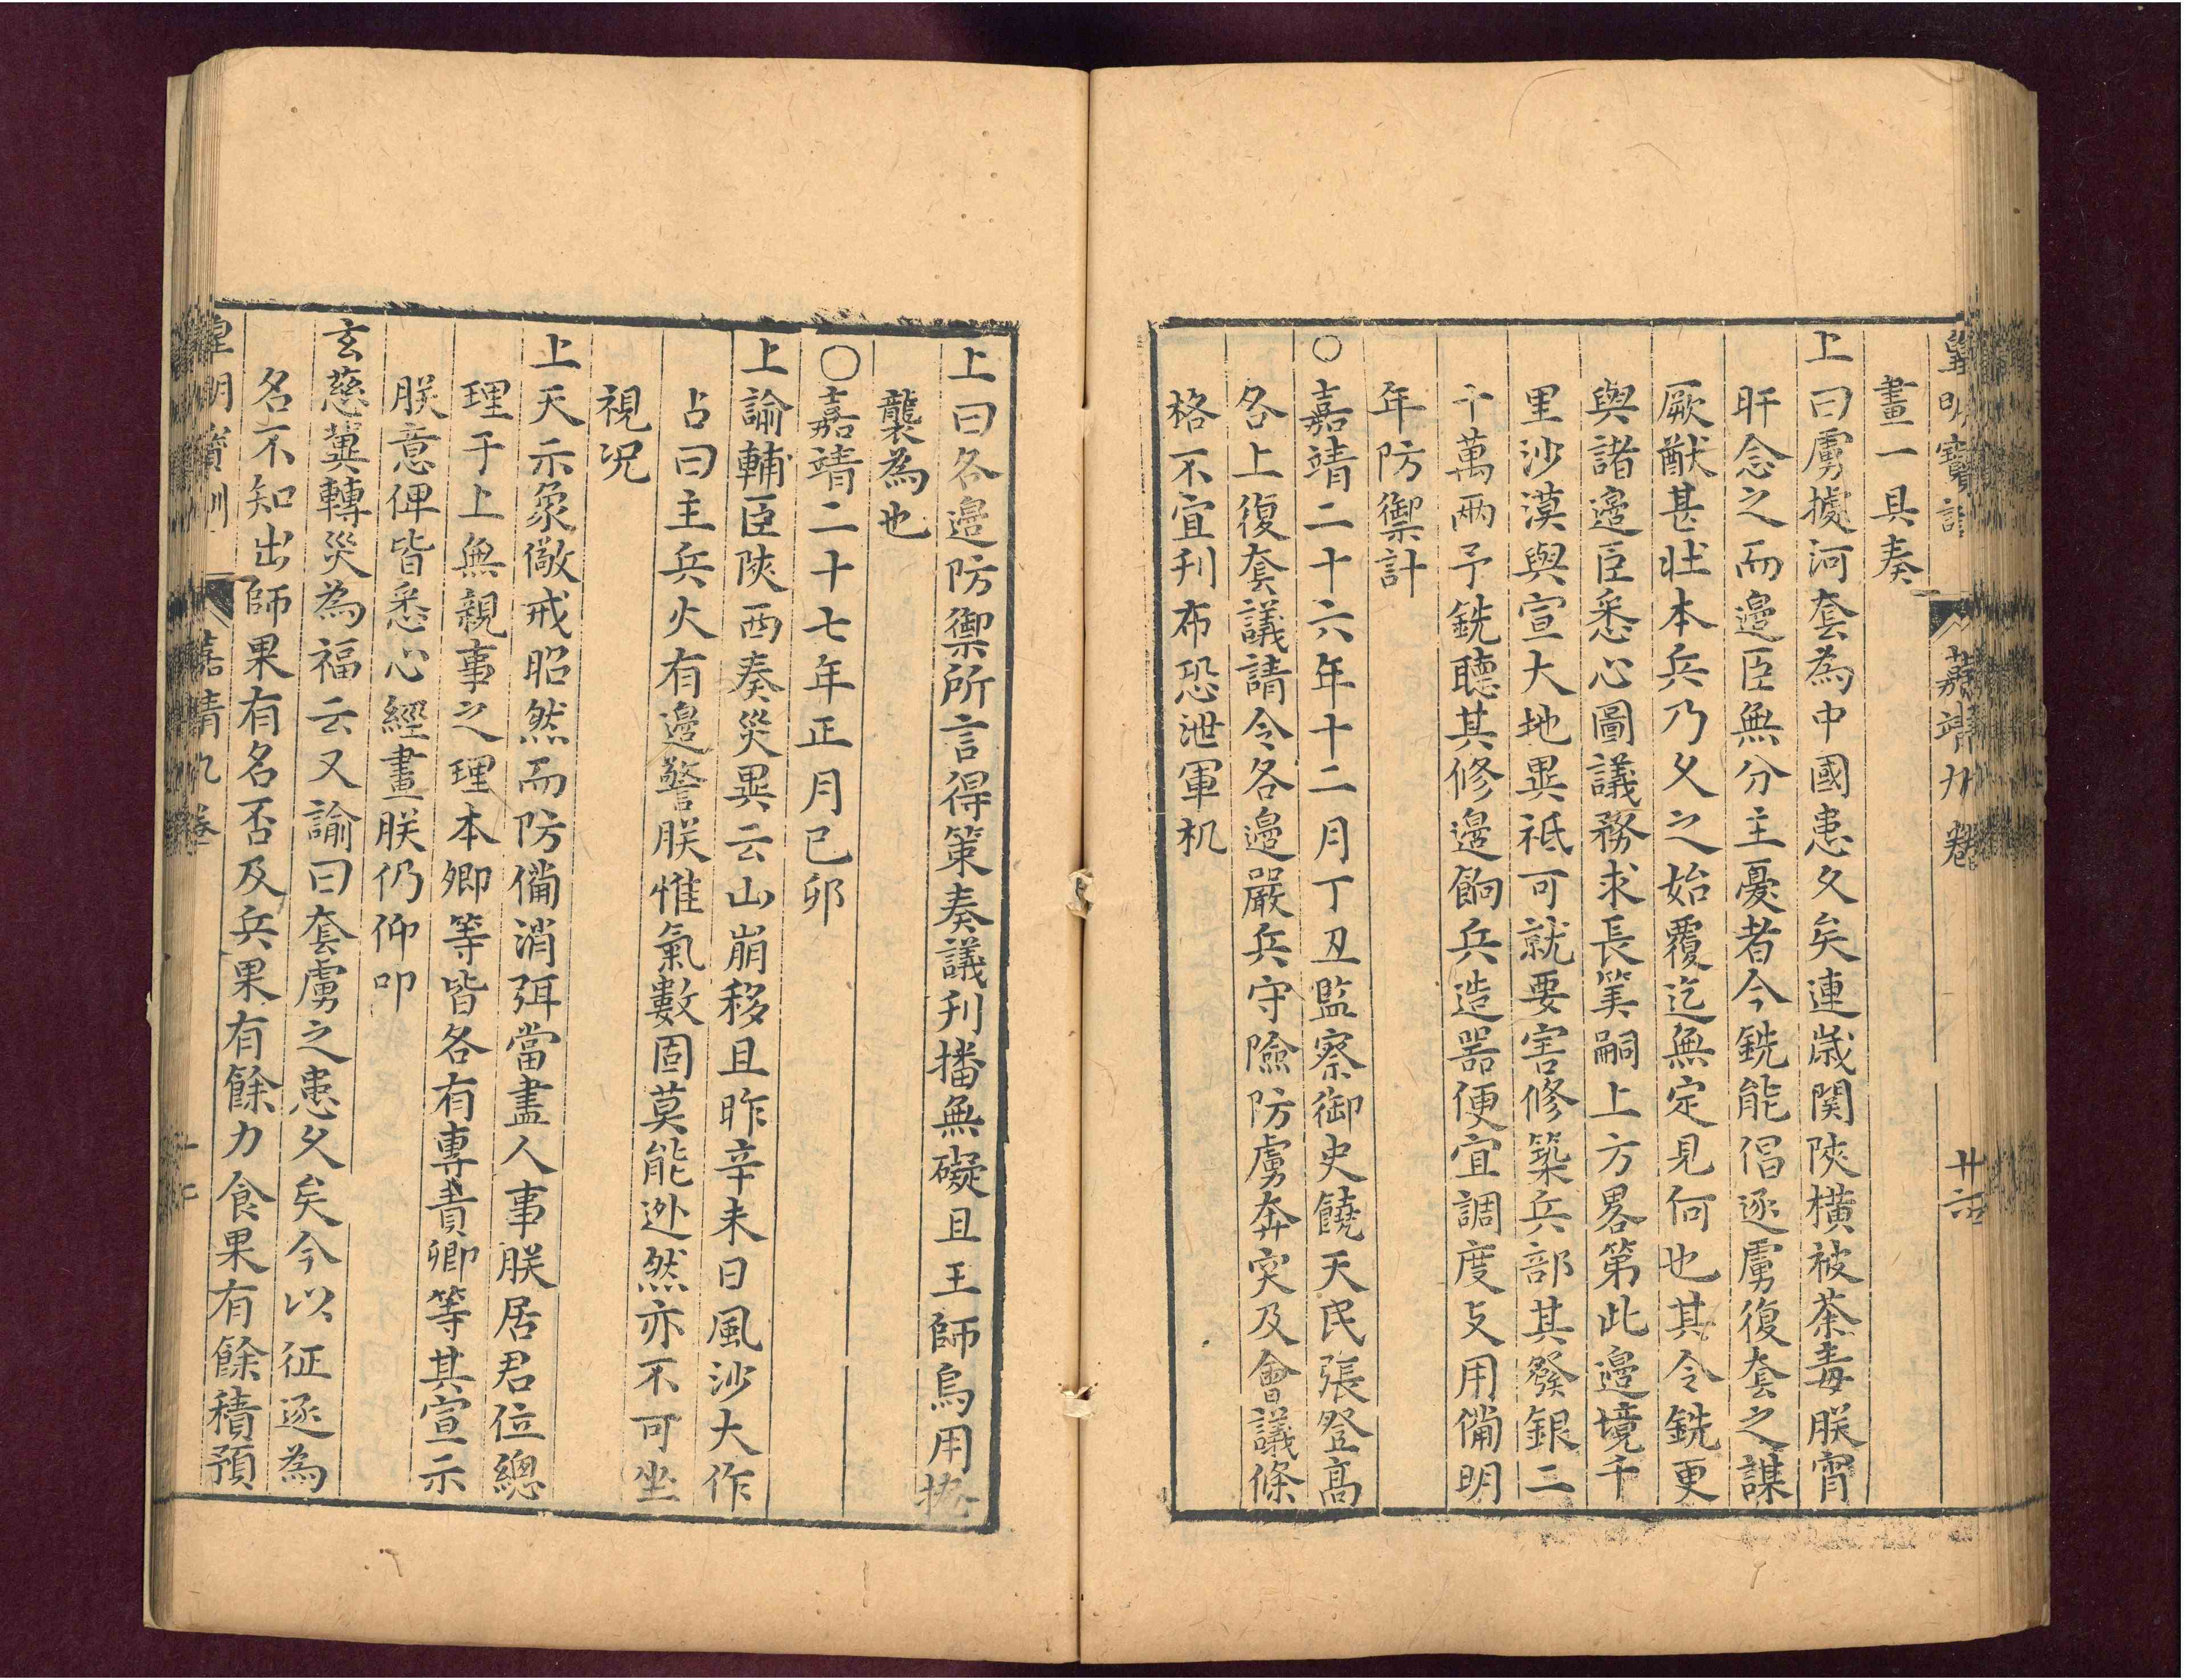 皇明寶訓 嘉靖九卷 廿六
畫一具奏
上曰虜據河套為中國患久矣連歲関陝橫被荼毒朕宵
旰念之而邊臣無分主憂者今銑能倡逐虜復套之謀
厥猷甚壯本兵乃久之始覆迄無定見何也其令銑更
與諸邊臣悉心圖議務求長筭嗣上方畧第此邊境千
里沙漠與宣大地異祗可就要害修築兵部其發銀二
十萬兩予銑聽其修邊餉兵造噐便宜調度攴用備明
年防禦計
○嘉靖二十六年十二月丁丑監察御史饒天民張登髙
各上復套議請令各邊嚴兵守險防虜奔突及會議條
格不宜刋布恐泄軍机
上曰各邊防禦所言得策奏議刋播無礙且王師烏用掩
襲為也
○嘉靖二十七年正月已卯
上諭輔臣陝西奏災異云山崩移且昨辛未日風沙大作
占曰主兵火有邊警朕惟氣數固莫能逊然亦不可坐
視况
上天示象儆戒昭然而防備消弭當盡人事朕居君位總
理于上無親事之理本卿等皆各有專責卿等其宣示
朕意俾皆悉心經畫朕仍仰叩
玄慈冀轉災為福云又諭曰套虜之患久矣今以征逐為
名不知出師果有名否及兵果有餘力食果有餘積預
皇明寶訓 嘉靖九卷